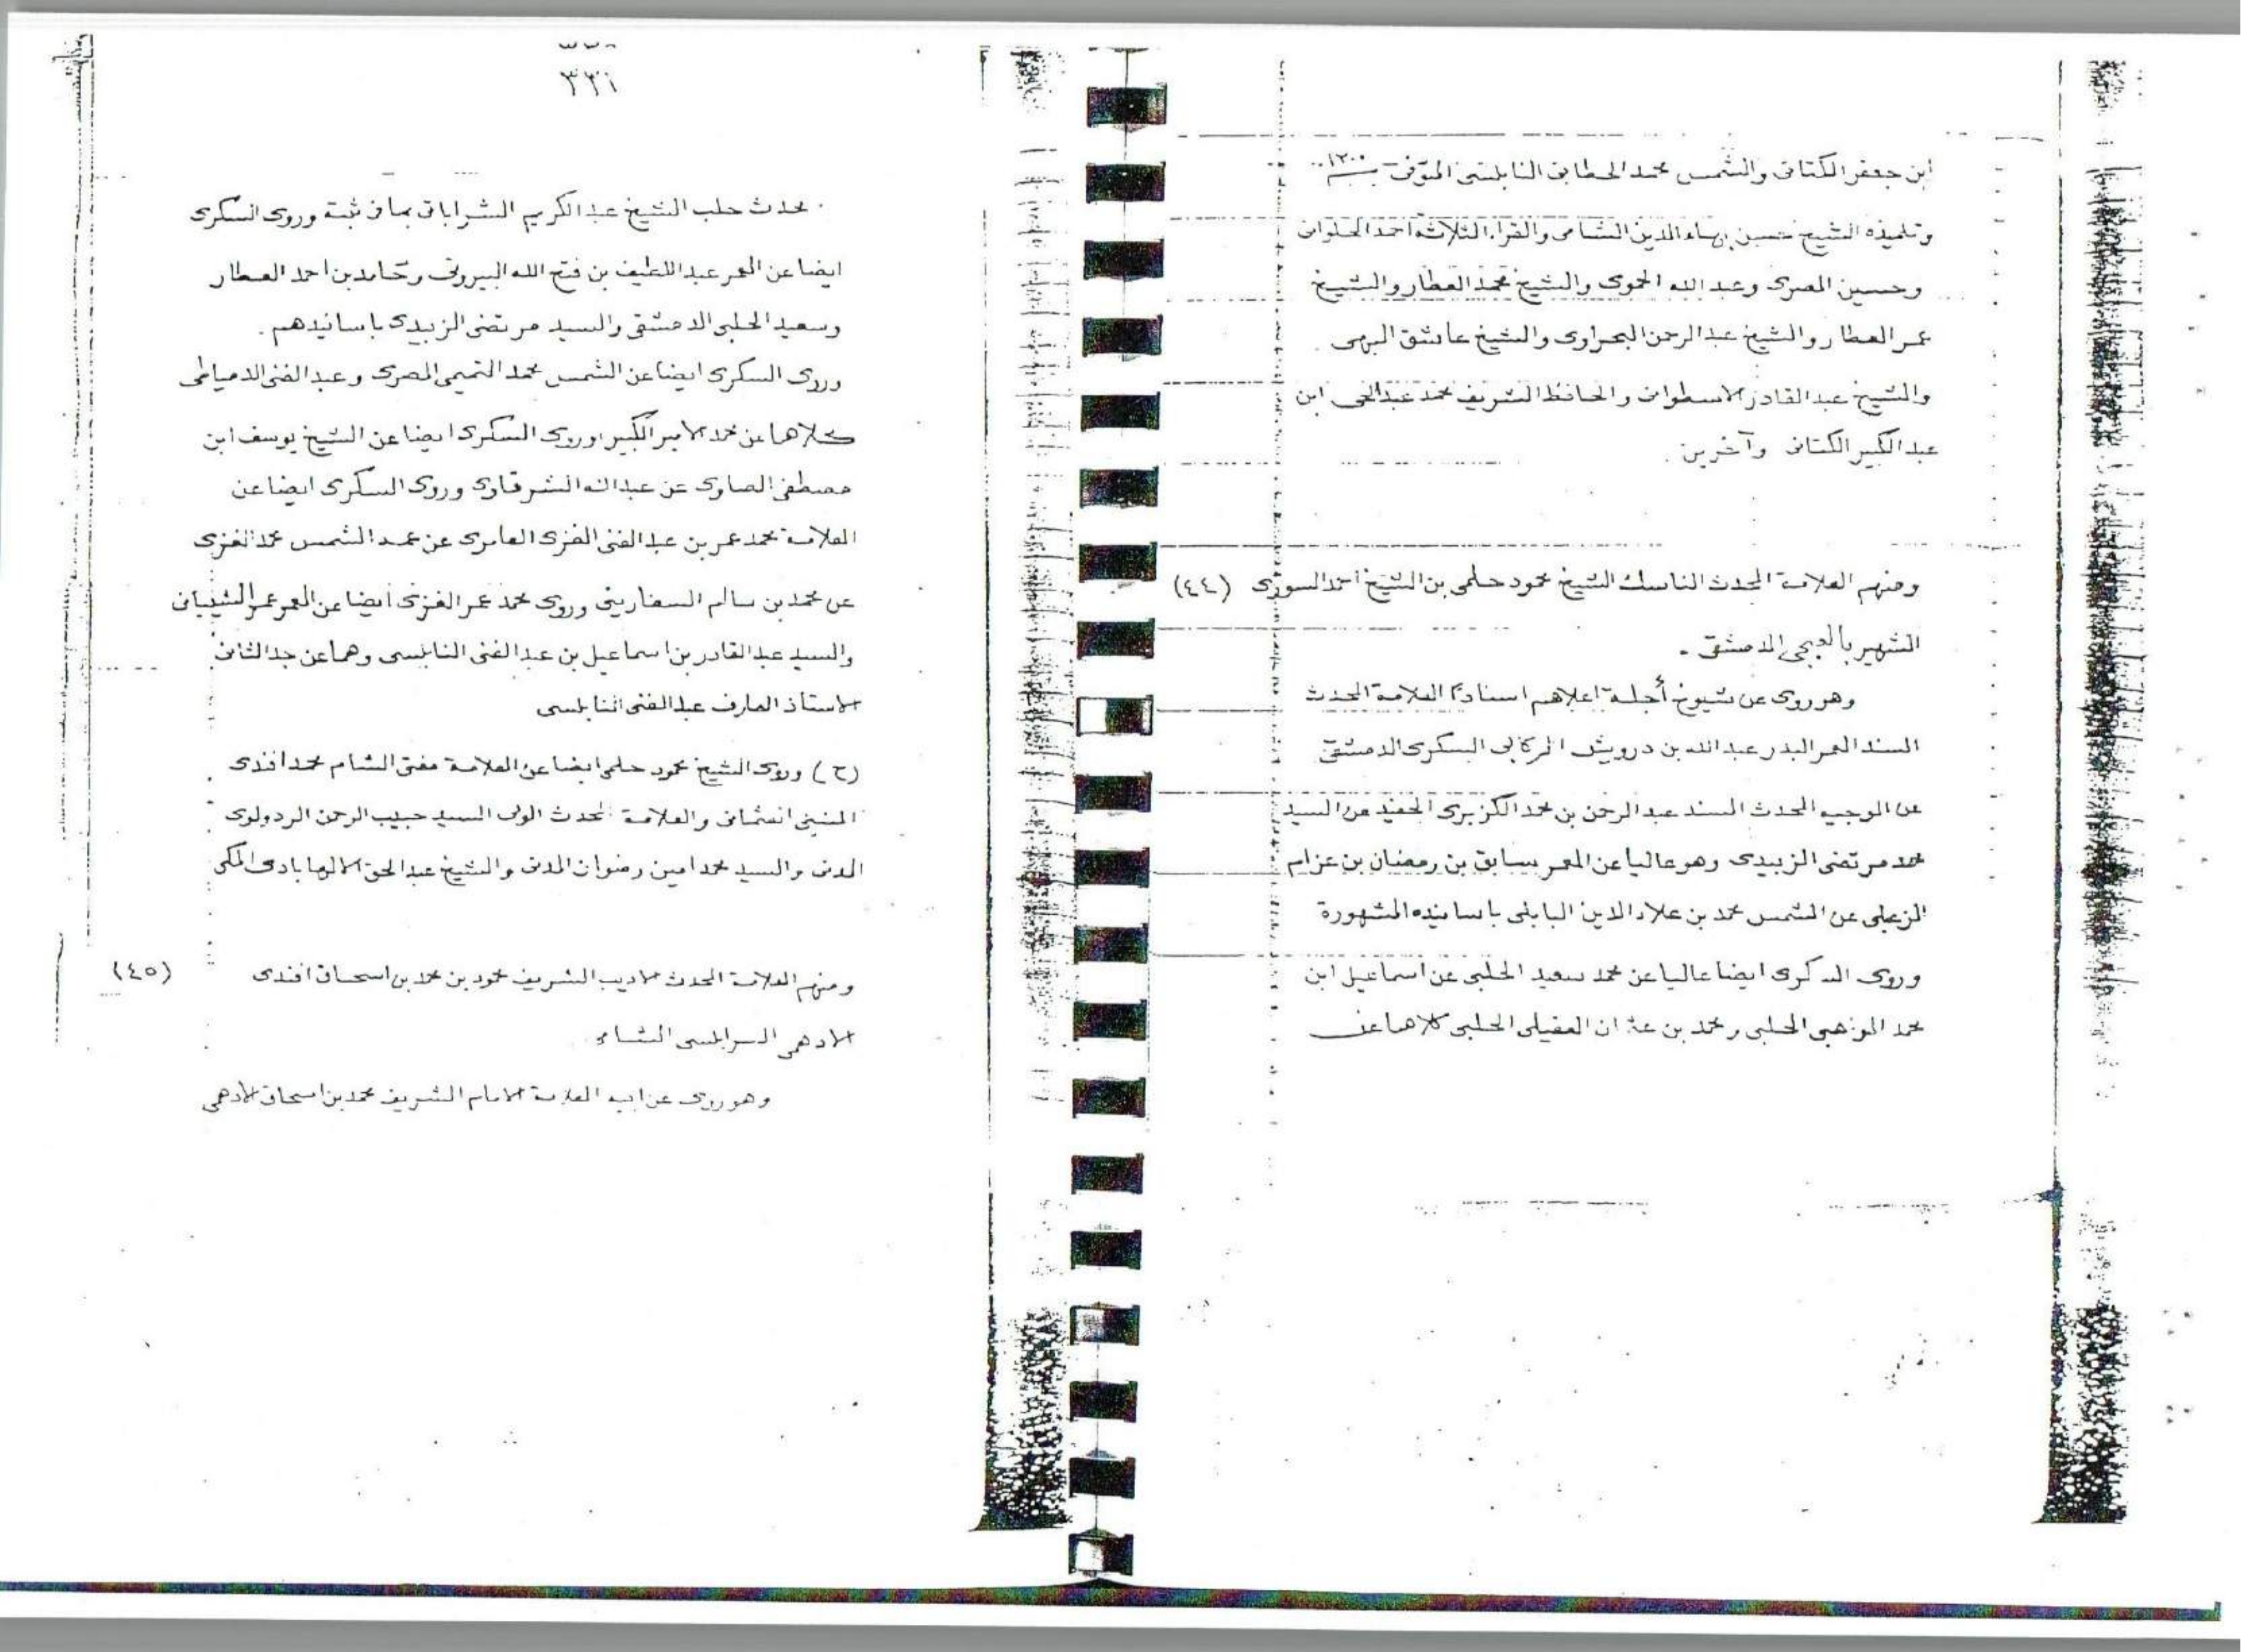 ابن جعفر الكتانى والشمس محمد الخطابى النابلسى المتوفى سنة ١٢٠٠
وتلميذه الشيخ حسين بهاء الدين الشامى والقراء الثلاثة احمد الحلوانى
وحسين المصرى وعبد الله الحموى والشيخ محمد العطار والشيخ
عمر العطار والشيخ عبد الرحمن البحراوى والشيخ عاشق البهى
والشيخ عبد القادر الاسطوانى والحافظ الشريف محمد عبد الحى ابن
عبد الكبير الكتانى وآخرين .
ومنهم العلامة المحدث الناسك الشيخ محمود حلمى بن الشيخ احمد السورى (٤٤)
الشهير بالعجى الدمشقى .
وهو روى عن شيوخ أجلة اعلاهم اسنادا العلامة المحدث
المسند المعمر البدر عبد الله بن درويش الركابى السكرى الدمشقى
عن الوجيه المحدث المسند عبد الرحمن بن محمد الكزبرى الحفيد عن السيد
محمد مرتضى الزبيدى وهو عاليا عن المعمر سابق بن رمضان بن عزام
الزعبلى عن الشمس محمد بن علاء الدين البابلى باسانيده المشهورة
وروى السكرى ايضا عاليا عن محمد سعيد الحلبى عن اسماعيل ابن
محمد المواهبى الحلبى ومحمد بن عثمان العقيلى الحلبى كلاهما عن
٣٣١
محدث حلب الشيخ عبد الكريم الشراباتى بما فى ثبته وروى السكرى
ايضا عن المعمر عبد اللطيف بن فتح الله البيروتى وحامد بن احمد العطار
وسعيد الحلبى الدمشقى والسيد مرتضى الزبيدى باسانيدهم .
وروى السكرى ايضا عن الشمس محمد التميمى المصرى وعبد الغنى الدمياطى
كلاهما عن محمد الامير الكبير وروى السكرى ايضا عن الشيخ يوسف ابن
مصطفى الصاوى عن عبد الله الشرقاوى وروى السكرى ايضا عن
العلامة محمد عمر بن عبد الغنى الغزى العامرى عن عمه الشمس محمد الغزى
عن محمد بن سالم السفارينى وروى محمد عمر الغزى ايضا عن المعمر عمر الشيبانى
والسيد عبد القادر بن اسماعيل بن عبد الغنى النابلسى وهما عن جد الثانى
الاستاذ العارف عبد الغنى النابلسى
(ح) وروى الشيخ محمود حلمى ايضا عن العلامة مفتى الشام محمد افندى
المنينى العثمانى والعلامة المحدث الولى السيد حبيب الرحمن الردولوى
المدنى والسيد محمد امين رضوان المدنى والشيخ عبد الحق الالهابادى المكى
ومنهم العلامة المحدث الاديب الشريف محمود بن محمد بن اسحاق افندى (٤٥)
الادهمى الطرابلسى الشامى
وهو روى عن ابيه العلامة الامام الشريف محمد بن اسحاق الادهمى